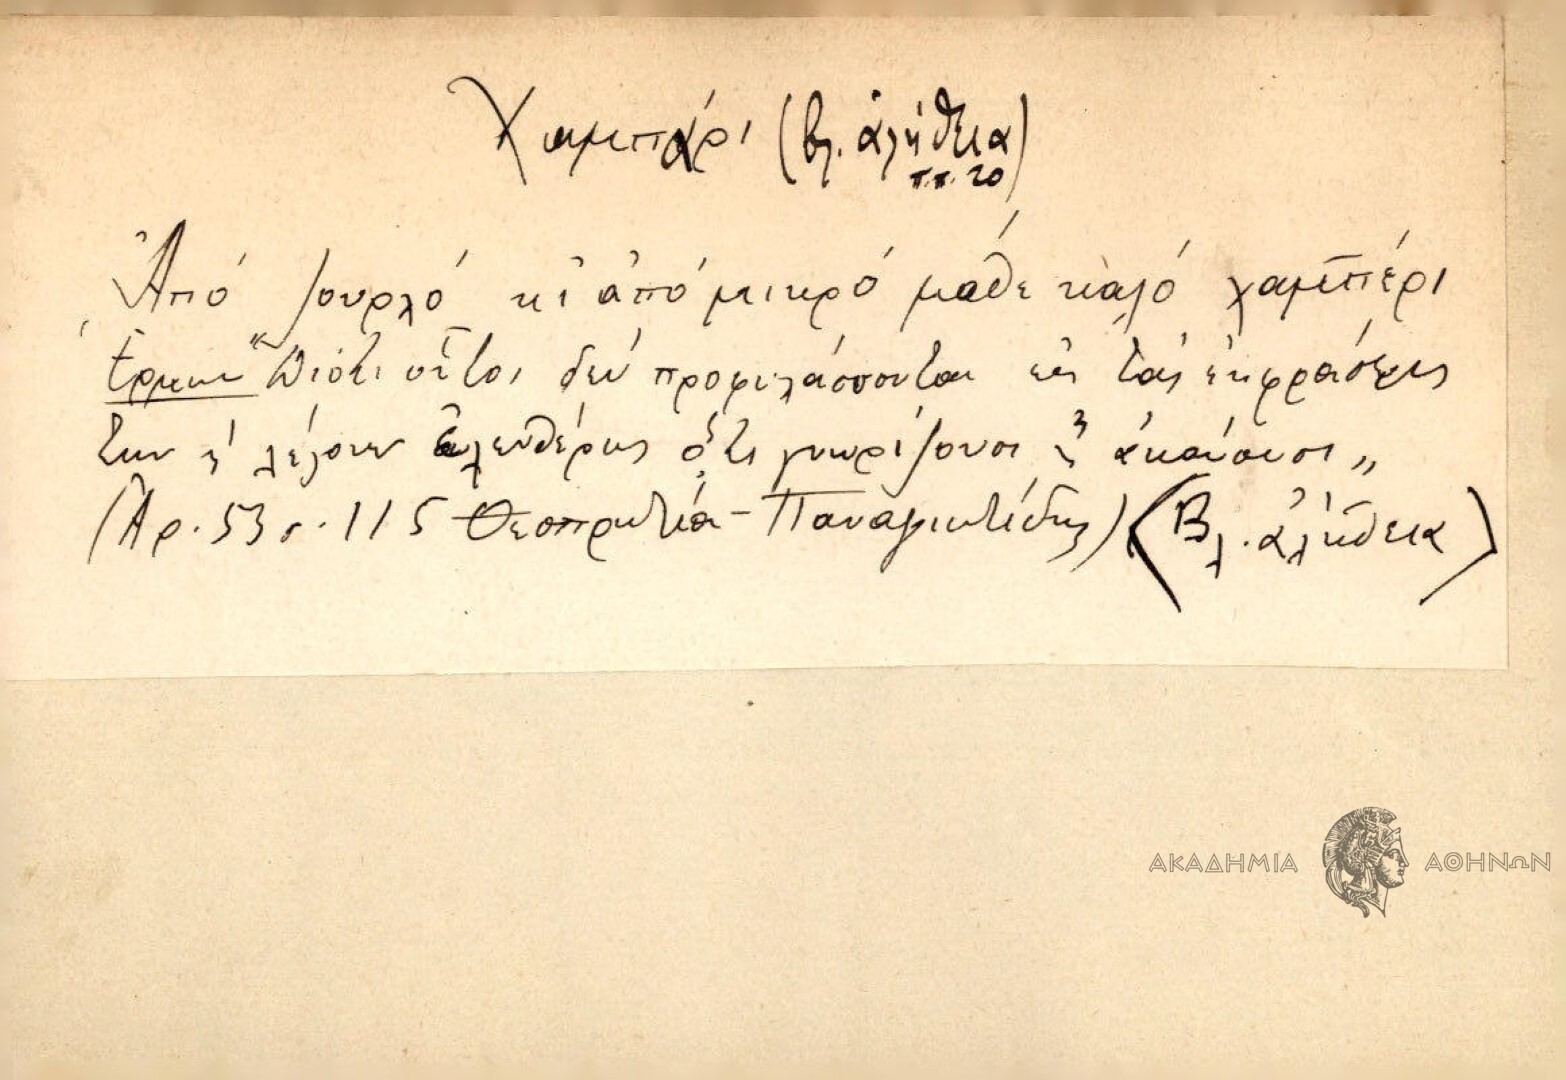 Χαμπάρι (βλ. ἀλήθεια
π.π. 20)
Ἀπό ζουρλό κι ἀπό μικρό μάθε καλό χαμπέρι
Ἑρμην "Διότι οὗτοι δέν προφυλάσσονται εἰς τάς ἐκφράσεις
των ἤ λέγουν ἐλευθέρως ὅτι γνωρίζουσι ἤ ἀκούουσι"
(Ἀρ. 53 σ. 115 Θεσπρωτία - Παναγιωτίδης) (Βλ. ἀλήθεια)
ΑΚΑΔΗΜΙΑ ΑΘΗΝΩΝ